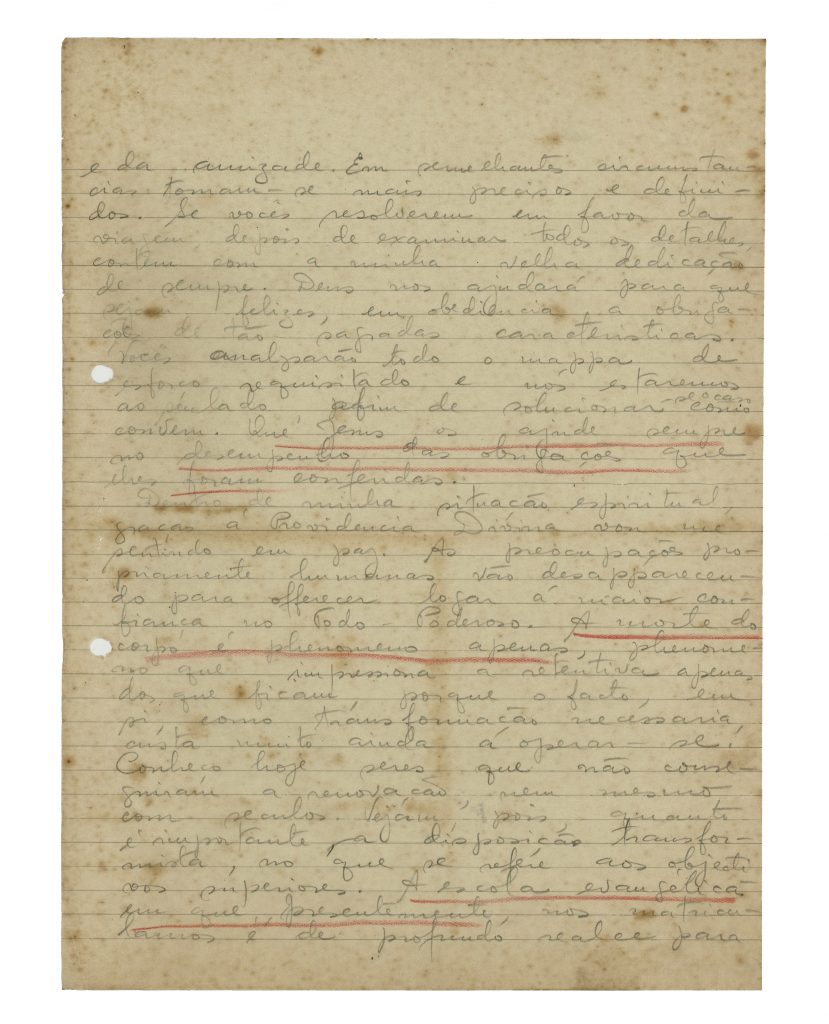 e da amizade. Em semelhantes circumstan-
cias tomam-se mais precisos e defini-
dos. Se vocês resolverem em favor da
viagem, depois de examinar todos os detalhes,
contem com a minha velha dedicação
de sempre. Deus nos ajudará para que
sejam felizes, em obediencia a obriga-
ções de tão sagradas caracteristicas.
Vocês analysarão todo o mappa de
esforço requisitado e nós estaremos
ao seu lado afim de solucionar se o caso como
convem. Que Jesus os ajude sempre
no desempenho das obrigações que
lhes foram conferidas.
Dentro de minha situação espiritual,
graças á Providencia Divina vou me
sentindo em paz. As preoccupações pro-
priamente humanas vão desapparecen-
do para offerecer logar á maior con-
fiança no Todo-Poderoso. A morte do
corpo é phenomeno apenas, phenome-
no que impressiona a retentiva apenas
dos que ficam, porque o facto, em
si, como transformação necessaria,
custa muito ainda á operar-se.
Conheço hoje seres que não conse-
guiram a renovação, nem mesmo
com seculos. Vejam, pois, quanto
é importante a disposição transfor-
mista, no que se refere aos objecti
vos superiores. A escola evangélica
em que, presentemente, nos matricu-
lamos é de profundo realce para